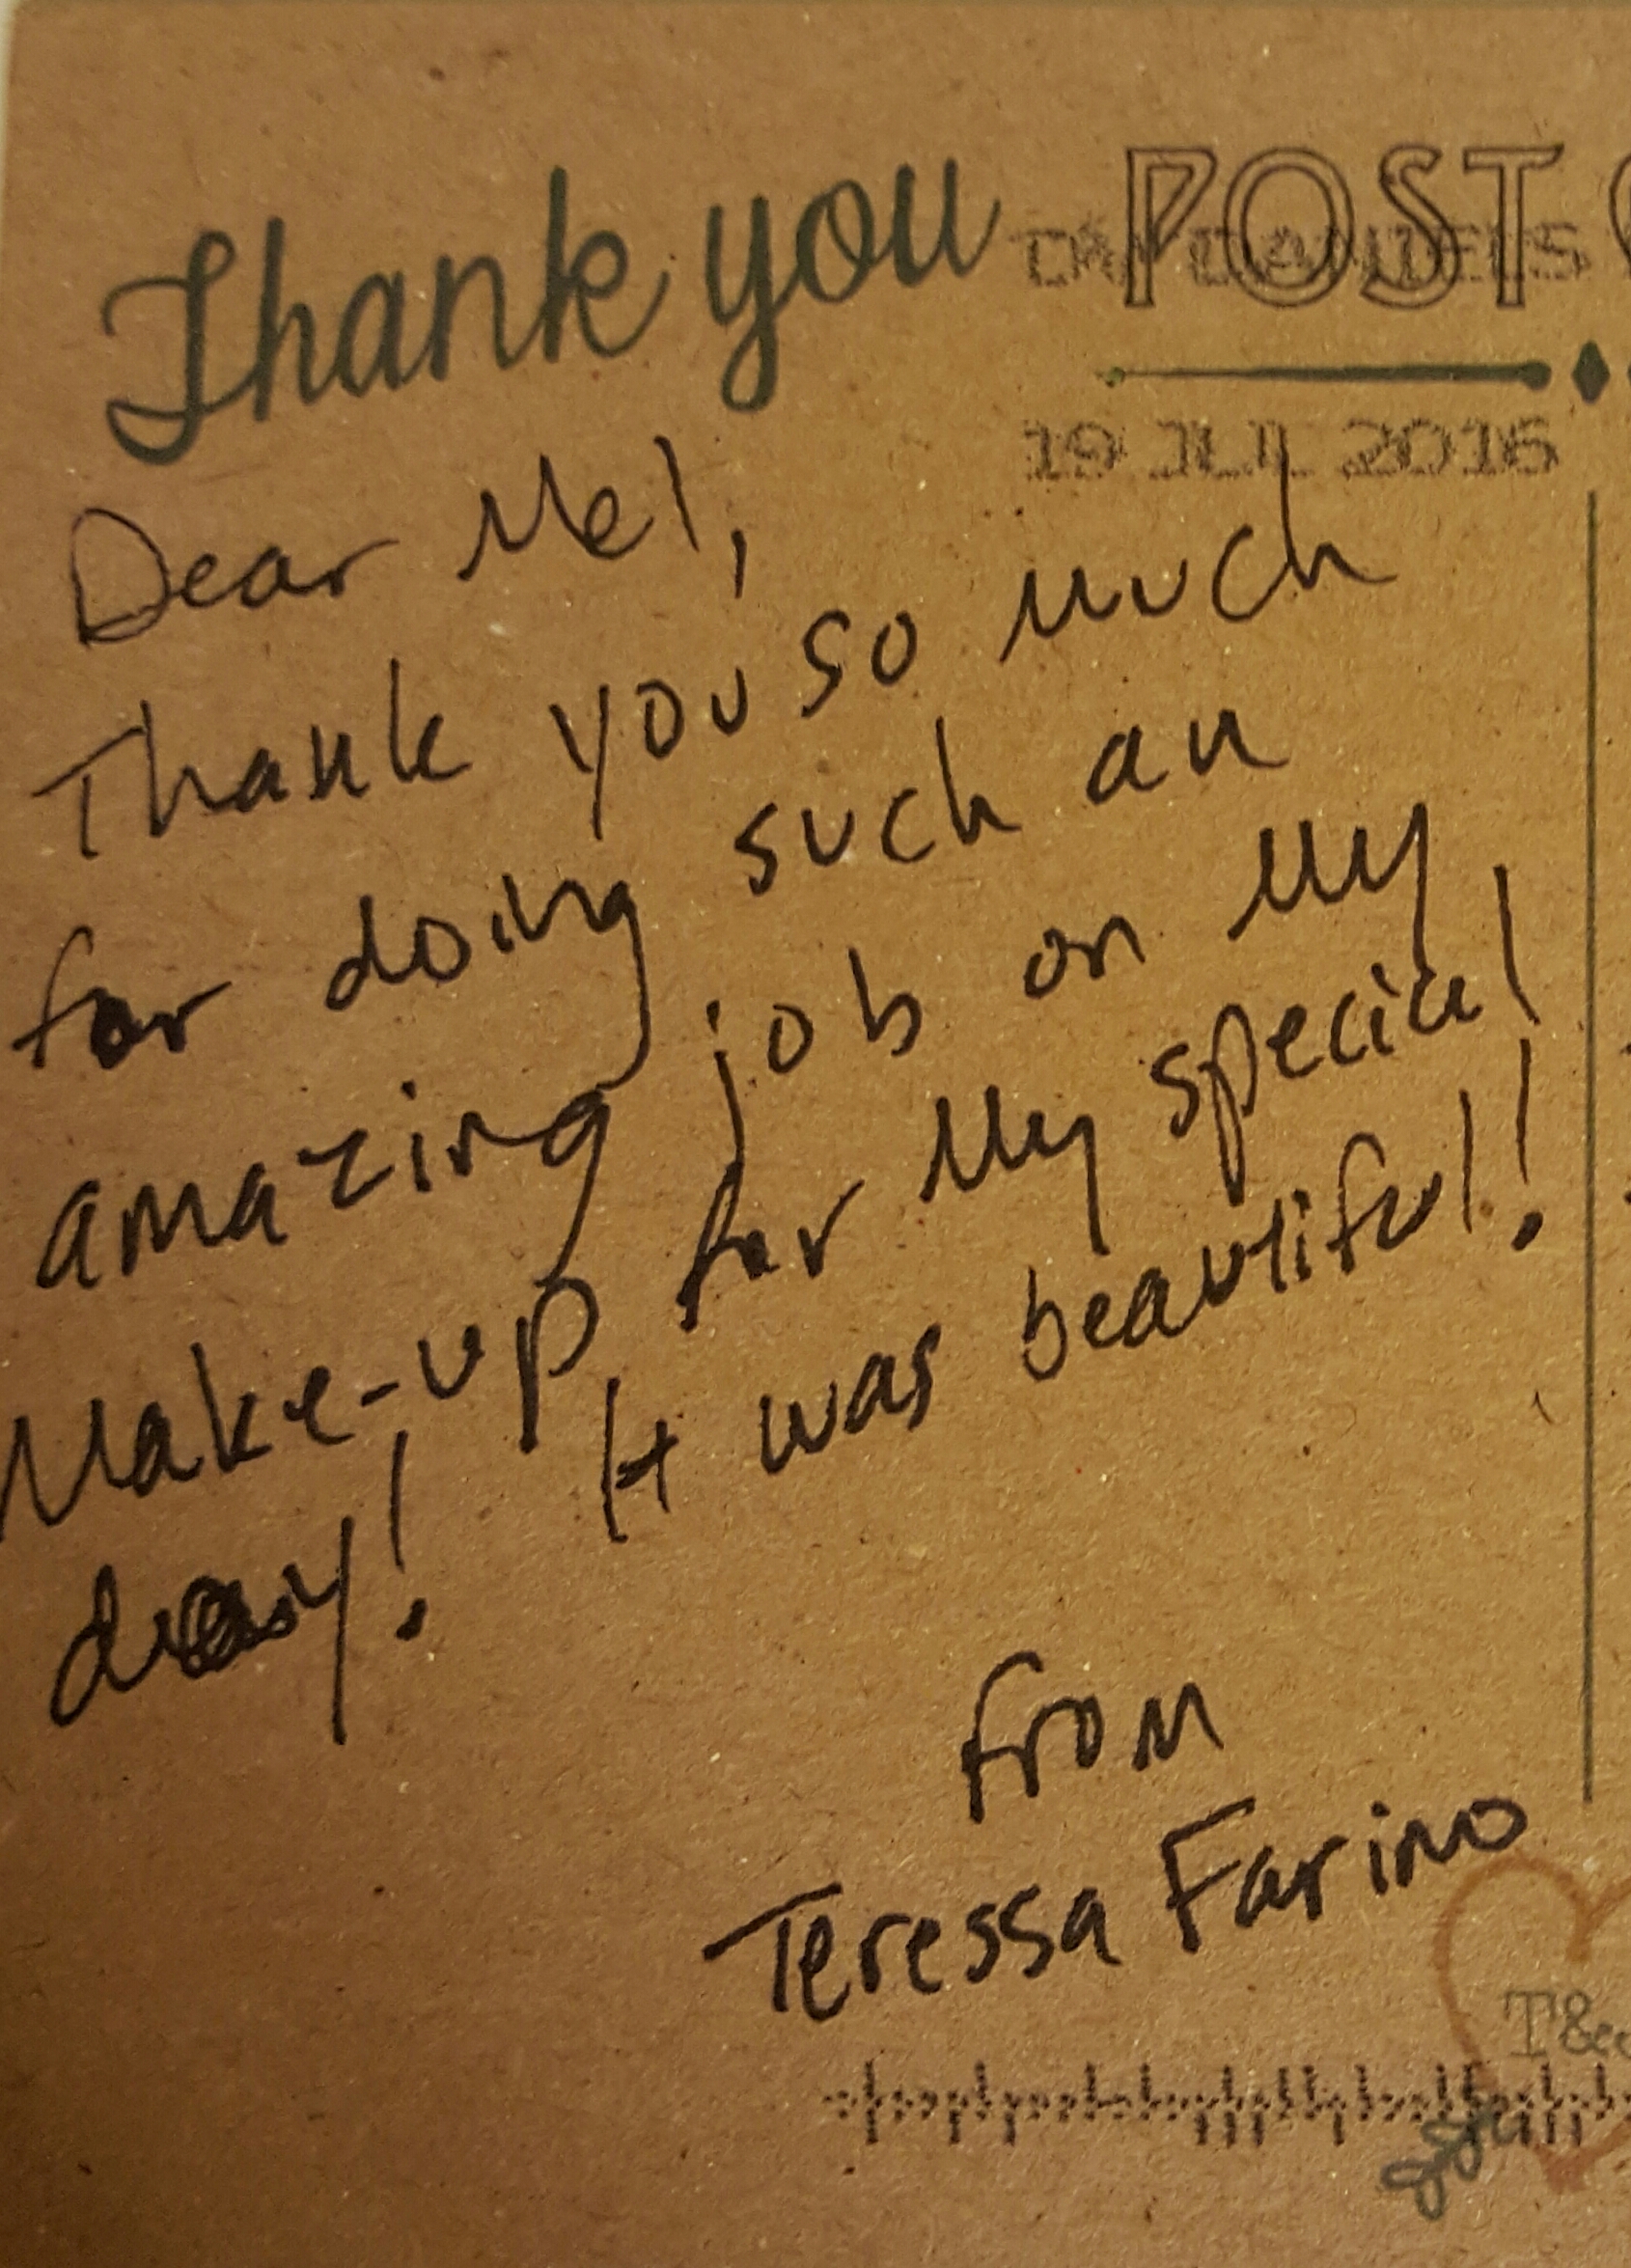 Thank you
POST
19 JUL 2016
Dear Mel,
Thank you so much
for doing such an
amazing job on my
Make-up for my special
day! It was beautiful!
from
Teressa Farino
T&